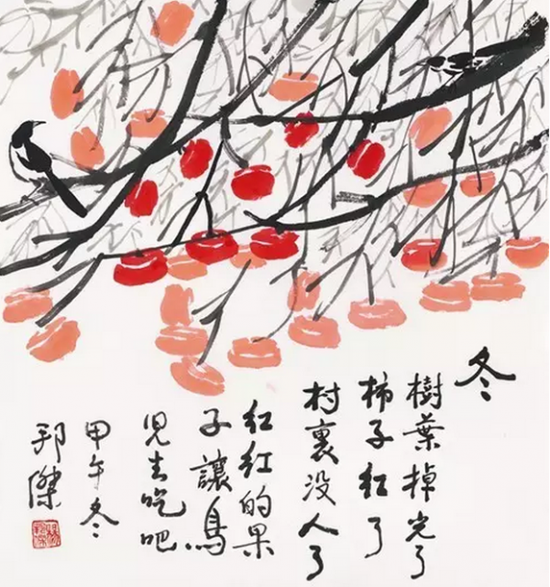 冬
樹葉掉光了
柿子紅了
村裏没人了
紅紅的果
子讓鳥
児去吃吧
甲午冬
邦傑